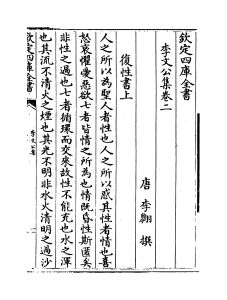 欽定四庫全書
李文公集卷二
唐 李翱 撰
復性書上
人之所以為聖人者性也人之所以惑其性者情也喜
怒哀懼愛惡欲七者皆情之所為也情既昏性斯匿矣
非性之過也七者循環而交來故性不能充也水之渾
也其流不清火之煙也其光不明非水火清明之過沙
欽定四庫全書
李文公集